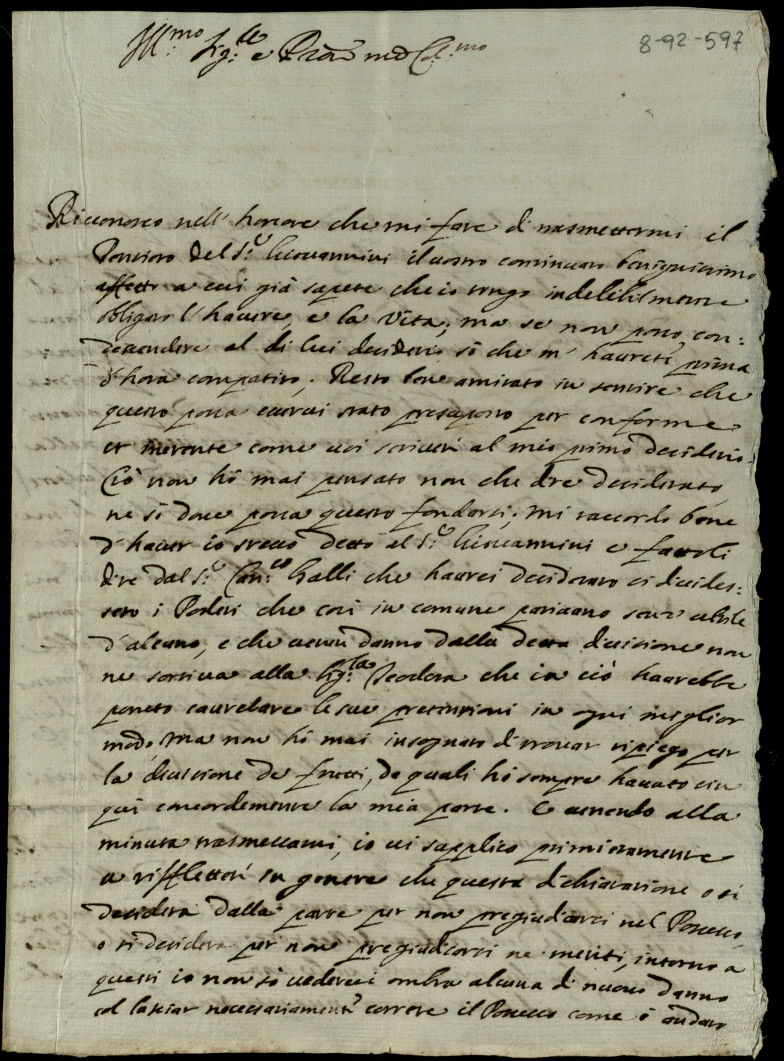 8-92-597
Ill.mo Sig.re e Pron mio Col.mo
Riconosco nell' honore che mi fate di trasmettermi il
Pensiero del S.r Giovannini il vostro continuato benignissimo
affetto a cui già sapete che io tengo indelebilmente
obligato l'havere, e la vita; ma se non posso con:
descendere al di lui desiderio sò che m' havreti prima
d'hora compatito. Resto ben amirato in sentire che
questo possa esservi stato presuposto per conforme
et inerente come voi scriveti al mio primo desiderio
Ciò non hò mai pensato non che dire desiderato,
ne sò dove possa questo fondarsi; mi raccordo bene
d'haver io stesso detto al S.r Giovannini e fattoli
dire dal S.r Can.co Galli che havrei desiderato si divides:
sero i Poderi che così in comune pativano senz' utile
d'alcuno, e che verun danno dalla detta divisione non
ne sortiva alla Sig.ra Teodora che in ciò havrebbe
potuto cautelare le sue pretensioni in ogni miglior
modo, Ma non hò mai insognato di trovar ripiego per
la divisione de frutti, de quali hò sempre havuto sin
quì concordemente la mia parte. E venendo alla
minuta trasmessami, io vi supplico primieramente
a rifflettere in genere che questa dichiarazione o si
desidera dalla parte per non pregiudicarsi nel Possesso,
o si desidera per non pregiudicarsi ne meriti, intorno a
questi io non sò vederci ombra alcuna di nuovo danno
col lasciar necessariamente correre il Possesso come è andato